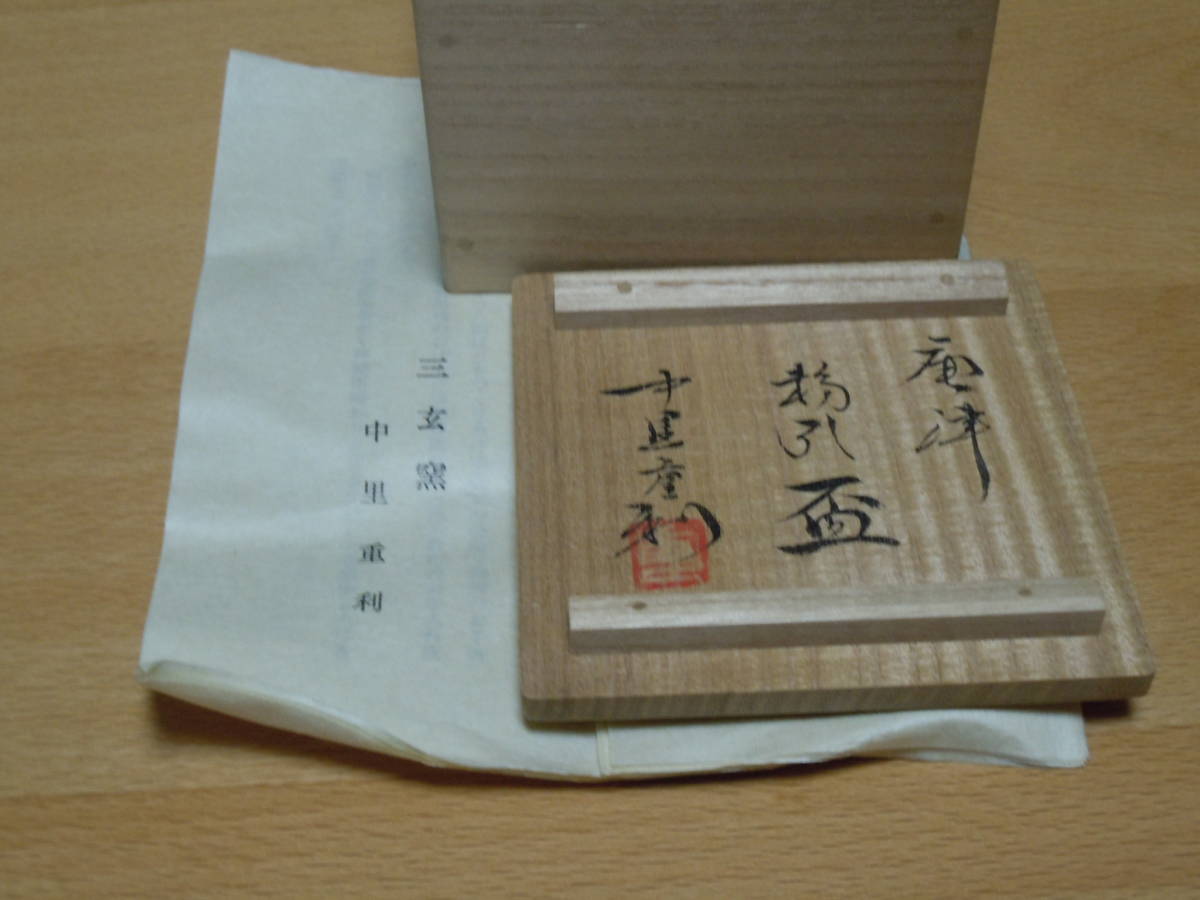 唐津
粉引盃
中里重利
三玄窯
中里重利